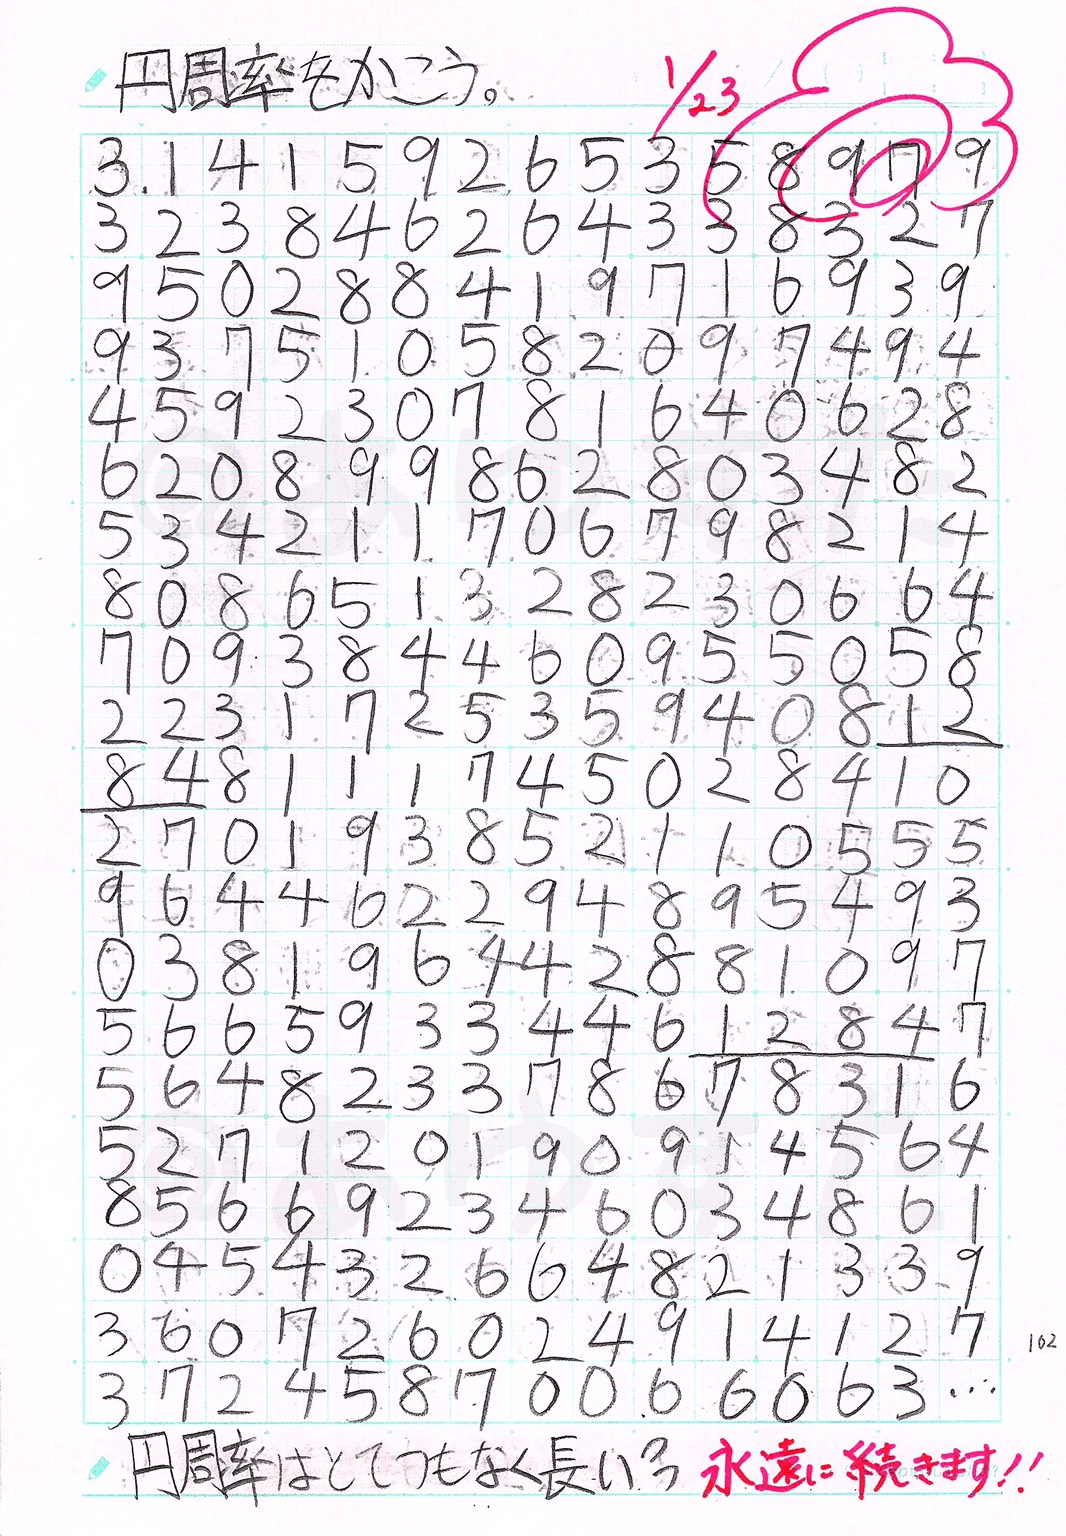 円周率をかこう。
1/23
3.14159265358979
323846264338327
950288419716939
937510582097494
459230781640628
620899862803482
534211706798214
808651328230664
709384460955058
223172535940812
848111745028410
270193852110555
964462294895493
038196442881097
566593344612847
564823378678316
527120190914564
856692346034861
045432664821339
360726024914127
37245870066063…
102
円周率はとてつもなく長い
永遠に続きます!!